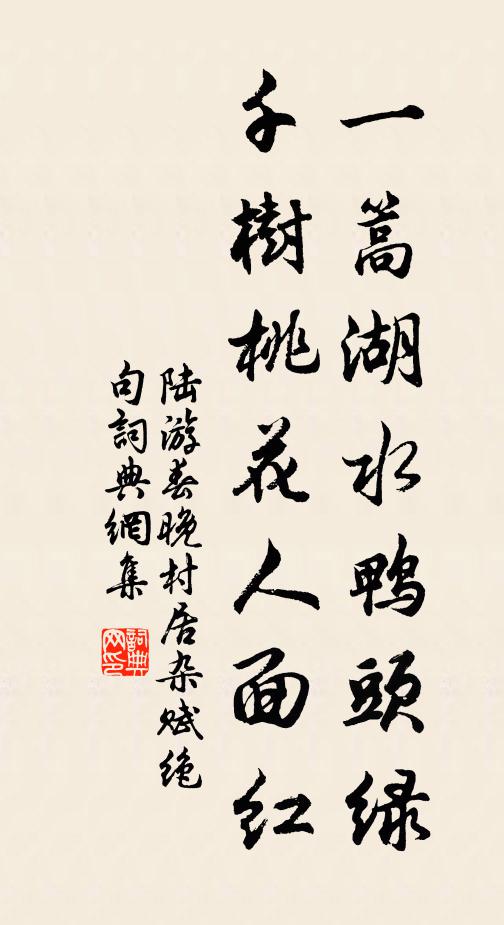 一篙湖水鸭頭緑
千樹桃花人面红
陆游春晚村居杂赋绝
句詞典網集
詞典
网印